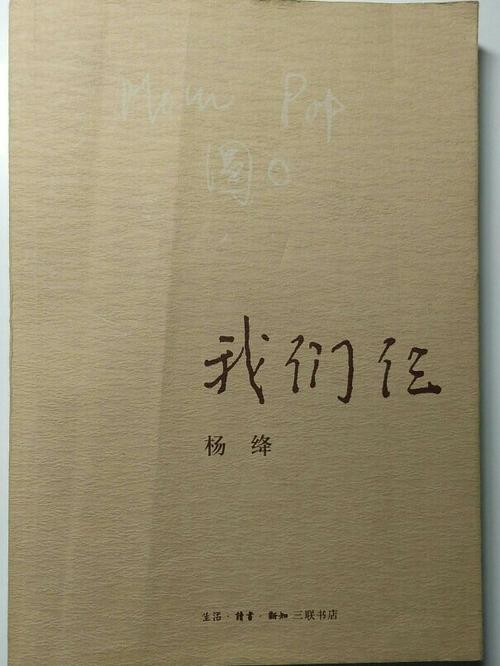 Mom Pop
圆〇
我们仨
杨绛
生活·读书·新知三联书店